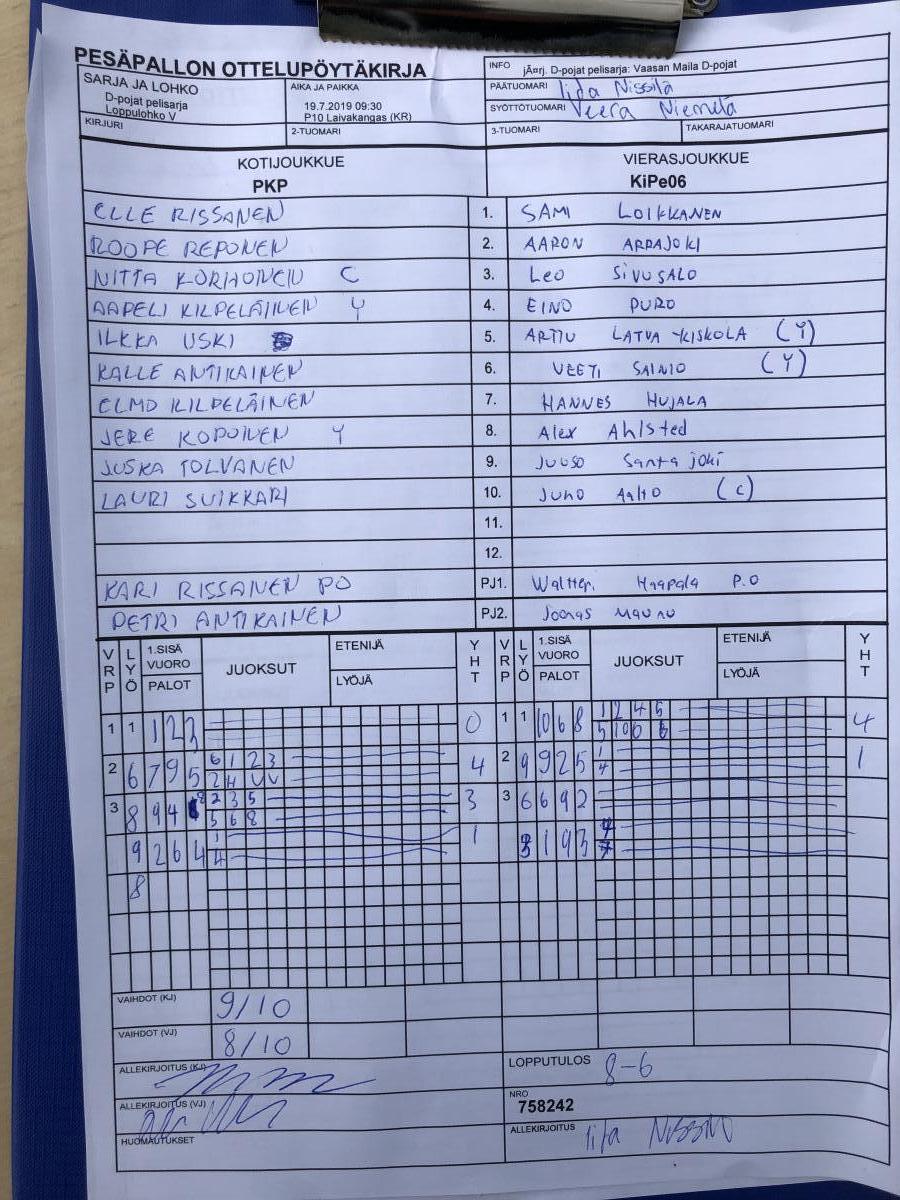 PESÄPALLON OTTELUPÖYTÄKIRJA
INFO jÃ¤rj. D-pojat pelisarja: Vaasan Maila D-pojat
SARJA JA LOHKO
D-pojat pelisarja
Loppulohko V
AIKA JA PAIKKA
19.7.2019 09:30
P10 Laivakangas (KR)
PÄÄTUOMARI Iida Nissilä
SYÖTTÖTUOMARI Veera Niemelä
KIRJURI
2-TUOMARI
3-TUOMARI
TAKARAJATUOMARI
KOTIJOUKKUE
PKP
VIERASJOUKKUE
KiPe06
ELLE RISSANEN 1. SAMI LOIKKANEN
ROOPE REPONEN 2. AARON ARPAJOKI
NITTA KORHONEN C 3. Leo SiVUSALO
AAPELI KILPELÄINEN Y 4. EINO PURO
ILKKA USKI 5. ARTTU LATVA-KISKOLA (Y)
KALLE ANTIKAINEN 6. VEETI SAINIO (Y)
ELMO KILPELÄINEN 7. HANNES HUJALA
JERE KOPONEN Y 8. Alex Ahlsted
JUSKA TOLVANEN 9. Juuso Santajoki
LAURI SUIKKARI 10. Juho Aalto (c)
11.
12.
KARI RISSANEN PO PJ1. Waltteri Haapala P.O
PETRI ANTIKAINEN PJ2. Joonas Maunu
VRP LYÖ 1.SISÄ VUORO PALOT JUOKSUT ETENIJÄ LYÖJÄ YHT VRP LYÖ 1.SISÄ VUORO PALOT JUOKSUT ETENIJÄ LYÖJÄ YHT
1 1 1 2 3 0 1 1 10 6 8 1 2 4 5 4
5 10 6 6
2 6 7 9 5 6 1 2 3 4 2 9 9 2 5 1 1
2 4 V V 4
3 8 9 4 8 2 3 5 3 3 6 6 9 2
5 6 8
9 2 6 4 1 1 3 1 9 3 4
4 7
8
VAIHDOT (KJ) 9/10
VAIHDOT (VJ) 8/10
ALLEKIRJOITUS (KJ)
LOPPUTULOS 8-6
ALLEKIRJOITUS (VJ)
NRO
758242
HUOMAUTUKSET
ALLEKIRJOITUS Iida Nissilä